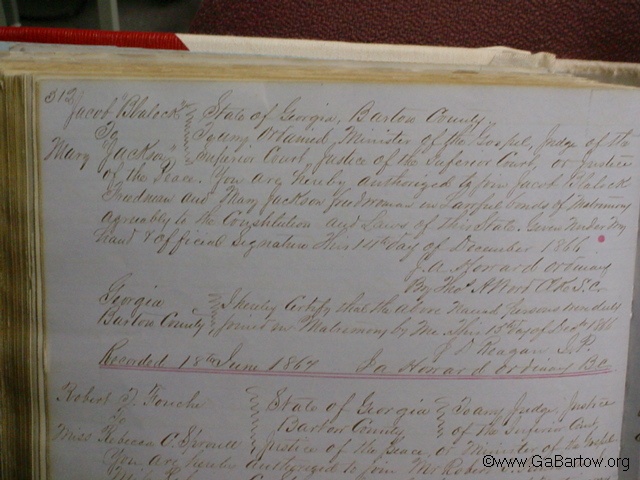 312
Jacob Blalock State of Georgia, Bartow County,
To To any Ordained Minister of the Gospel, Judge of the
Mary Jackson Superior Court, Justice of the Inferior Court or Justice
of the Peace. You are hereby authorized to join Jacob Blalock
Freedman and Mary Jackson Freedwoman in Lawful bonds of Matrimony
agreeably to the Constitution and Laws of this State. Given Under My
hand & official Signature This 14th Day of December 1866
J. A. Howard Ordinary
By Thos. A Word Clk S.C.
Georgia I hereby Certify that the above Named persons were duly
Bartow County joined in Matrimony by Me this 15th Day of Decr 1866
Reagan J.P.
Recorded 18th June 1867 J a Howard ordinary B.C.
Robert T. Fouche State of Georgia To any Judge, Justice
To Bartow County of the Superior Court,
Miss Rebecca C Sproull Justice of the Peace, or Minister of the Gospel
You are hereby authorized to join Mr Robert
©www.GaBartow.org